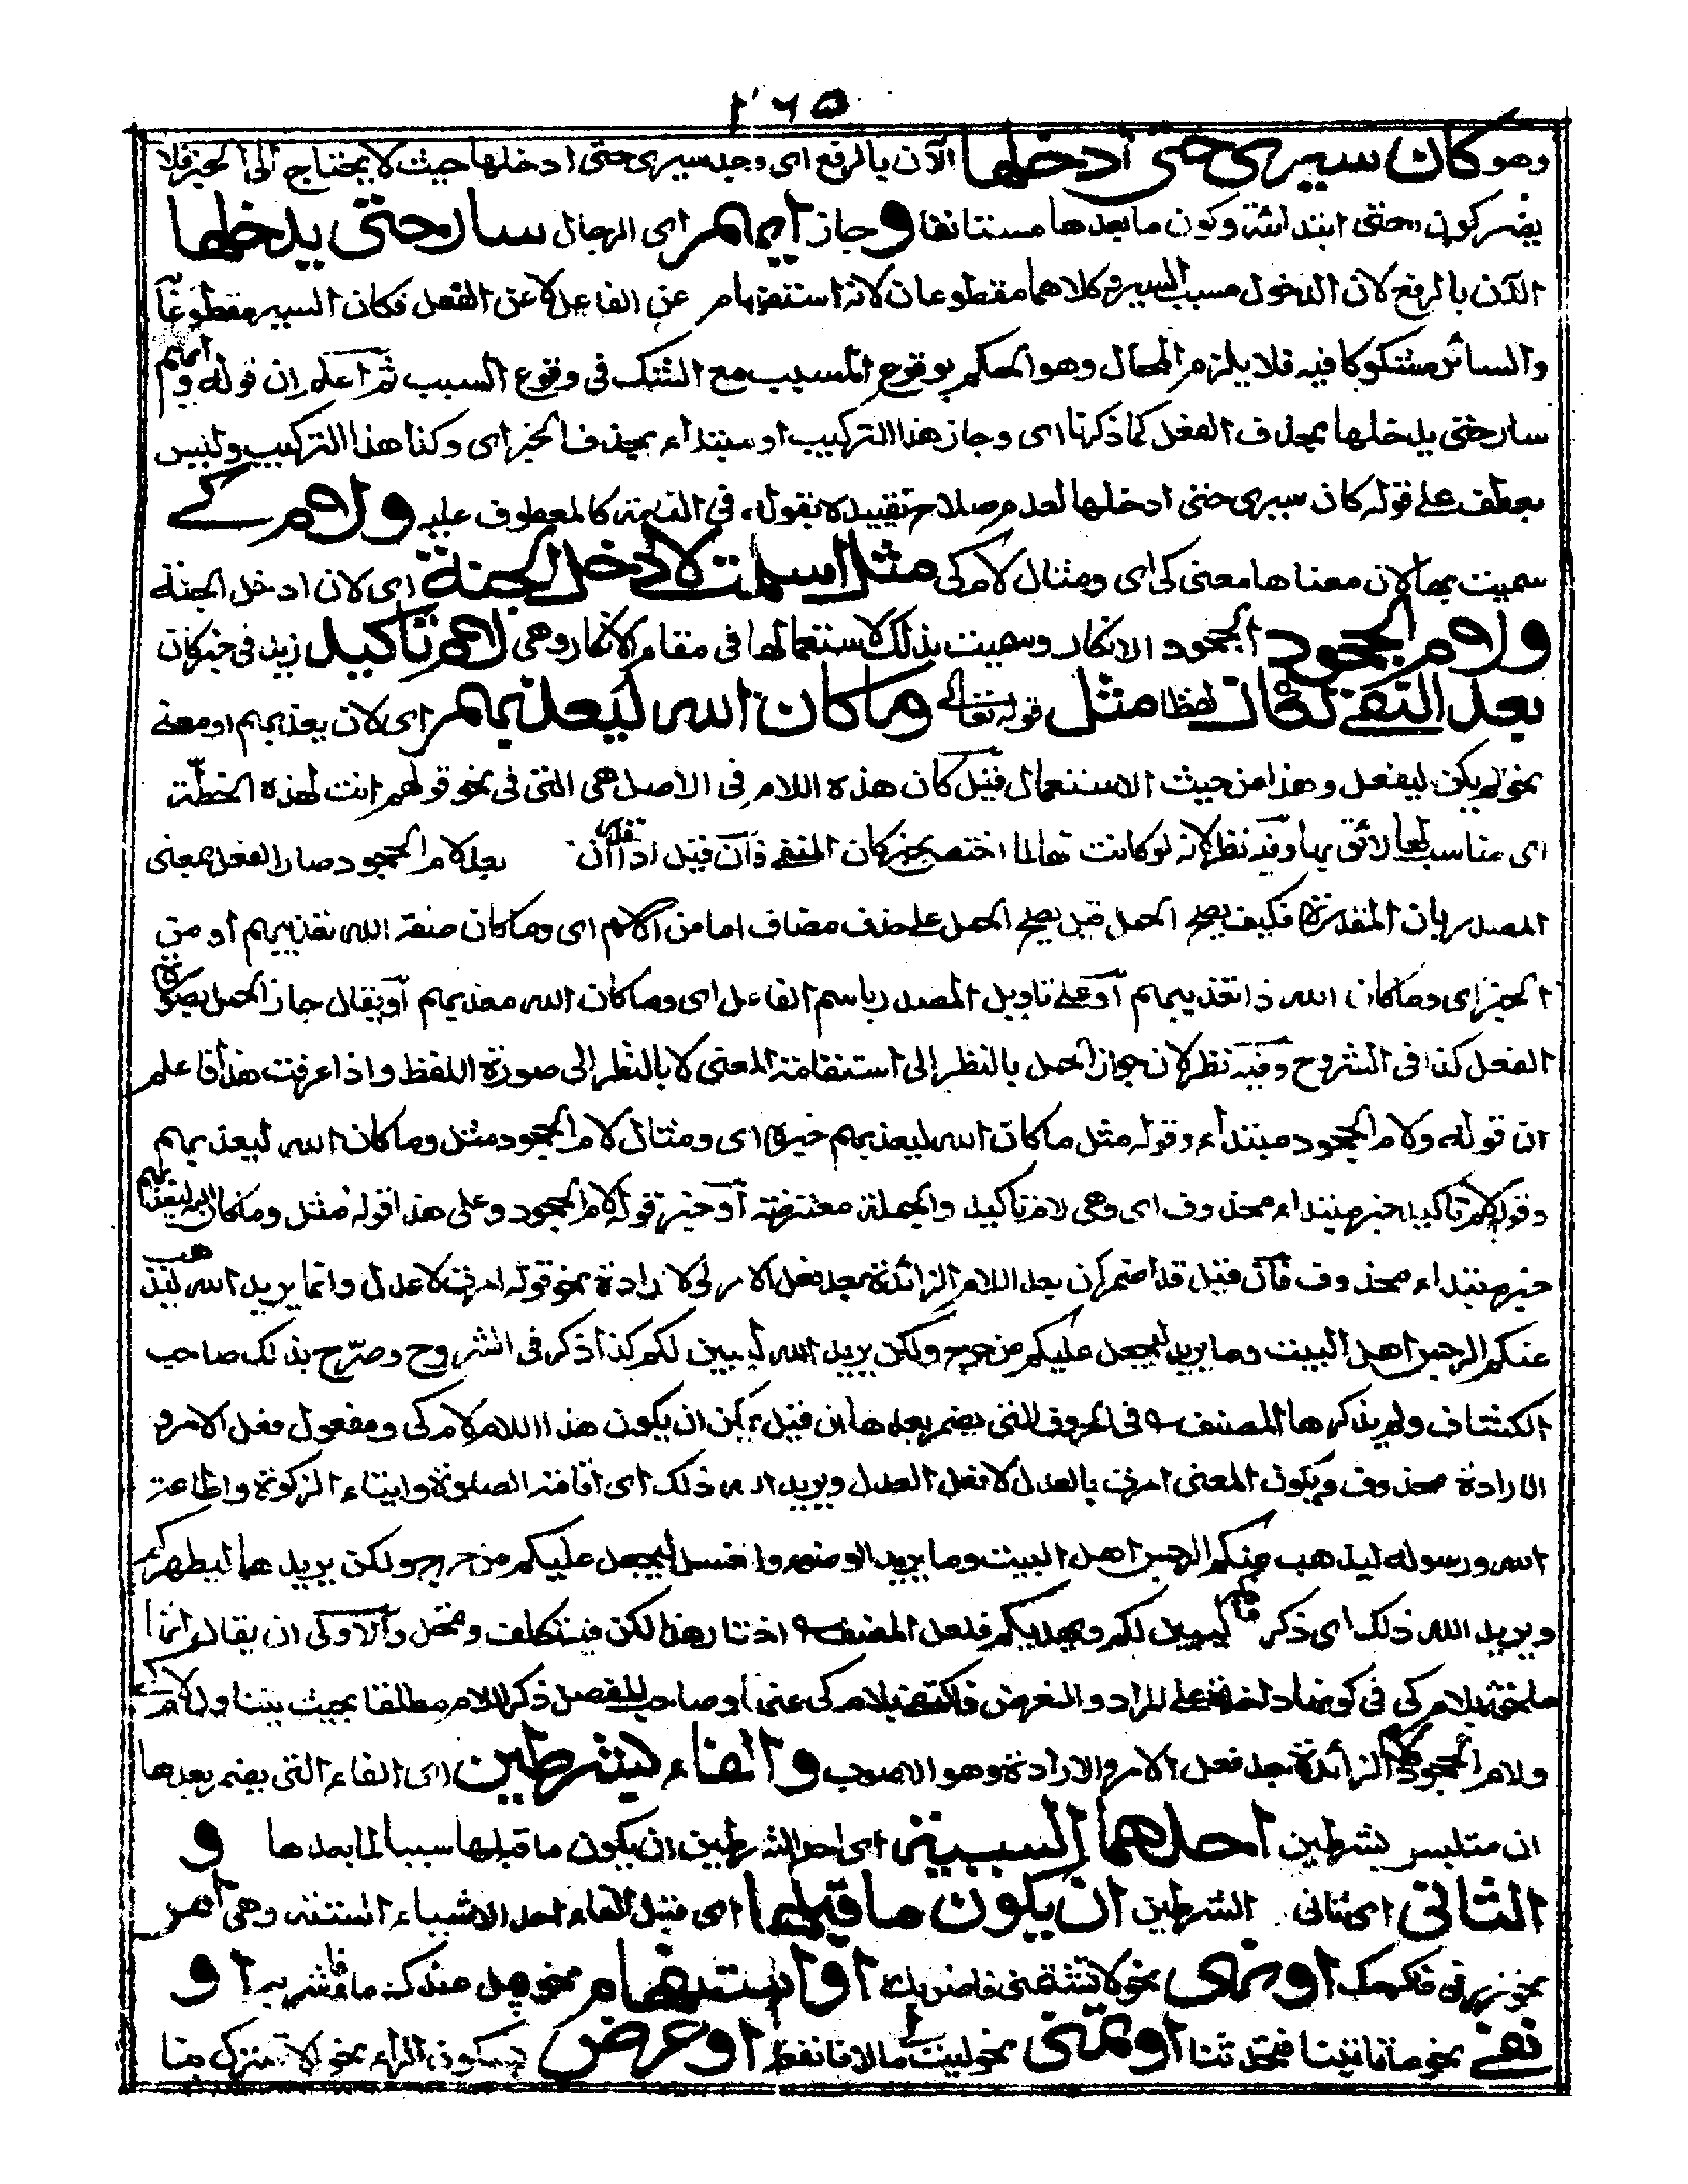 ٢٦٥
وهو كان سيرى حتى أدخلها الآن بالرفع اى وجد سيرى حتى ادخلها حيث لا يحتاج الى الخبر فلا
يضر كون حتى ابتدائية وكون ما بعدها مستانفا وجاز ايهم اى الرجال سار حتى يدخلها
الآن بالرفع لان الدخول مسبب السير وكلاهما مقطوعان لانه استفهام عن الفاعل لا عن الفعل فكان السير مقطوعا
والسائر مشكوكا فيه فلا يلزم المحال وهو الحكم بوقوع المسبب مع الشك فى وقوع السبب ثم اعلم ان قوله وايهم
سار حتى يدخلها بحذف الفعل كما ذكرنا اى وجاز هذا التركيب او مبتداء بحذف الخبر اى وكذا هذا التركيب وليس
بعطف على قوله كان سيرى حتى ادخلها لعدم صلاح تقييده بقوله فى التامة كالمعطوف عليه ولام كے
سميت بها لان معناها معنى كى اى ومثال لام كى مثل اسلمت لادخل الجنة اى لان ادخل الجنة
ولام الجحود الجحود الانكار وسميت بذلك لاستعمالها فى مقام الانكار وهى لام تاكيد زيد فى خبر كان
بعد النفے لكان لفظا مثل قوله تعالے وما كان الله ليعذبهم اى لان يعذبهم او معنے
نحو لم يكن ليفعل وهذا من حيث الاستعمال قيل كان هذه اللام فى الاصل هى التى فى نحو قولهم انت لهذه الخطة
اى مناسب لها لائق بها وفيه نظر لانه لو كانت تها لما اختص بخبر كان المنفے فان قيل اذا تقدر ان بعد لام الجحود صار الفعل بمعنى
المصدر بان المقدرة فكيف يصح الحمل قيل يصح الحمل على حذف مضاف اما من الاسم اى وما كان صفة الله تعذيبهم او من
الخبر اى وما كان الله ذا تعذيبهم او على تاويل المصدر باسم الفاعل اى وما كان الله معذبهم او يقال جاز الحمل بصورة
الفعل كذا فى الشروح وفيه نظر لان جواز الحمل بالنظر الى استقامة المعنى لا بالنظر الى صورة اللفظ واذا عرفت هذا فاعلم
ان قوله ولام الجحود مبتداء وقوله مثل ما كان الله ليعذبهم خبره اى ومثال لام الجحود مثل وما كان الله ليعذبهم
وقوله لام تاكيد خبر مبتداء محذوف اى وهى لام تاكيد والجملة معترضة او خبر قوله لام الجحود وعلى هذا قوله مثل وما كان الله ليعذبهم
خبر مبتداء محذوف فان قيل قد اضمر ان بعد اللام الزائدة بعد فعل الامر والارادة نحو قوله امرت لاعدل وانما يريد الله ليذهب
عنكم الرجس اهل البيت وما يريد ليجعل عليكم من حرج ولكن يريد الله ليبين لكم كذا ذكر فى الشروح وصرح بذلك صاحب
الكشاف ولم يذكرها المصنف فى الحروف التى يضمر بعدها ان قيل يمكن ان يكون هذا اللام لام كى ومفعول فعل الامر و
الارادة محذوف ويكون المعنى امرت بالعدل لافعل العدل ويريد الله ذلك اى اقامة الصلوة وايتاء الزكوة واطاعة
الله ورسوله ليذهب عنكم الرجس اهل البيت وما يريد الوضوء والغسل ليجعل عليكم من حرج ولكن يريد هما ليطهركم
ويريد الله ذلك اى ذكر ليبين لكم ويهديكم فلعل المصنف اختار هذا لكن فيه تكلف وتمحل والاولى ان يقال انها
ملحقة بلام كى فى كونها دلالة على المراد والغرض فاكتفے بلام كى عنها وصاحب المفصل ذكر اللام مطلقا بحيث يتناول لام كے
ولام الجحود واللام الزائدة بعد فعل الامر والارادة وهو الاصوب والفاء بشرطين اى الفاء التى يضمر بعدها
ان متلبس بشرطين احدهما السببية اى احد الشرطين ان يكون ما قبلها سببا لما بعدها و
الثانى اى ثانى الشرطين ان يكون ما قبلها اى قبل الفاء احد الاشياء الستة وهى امر
نحو زرنى فاكرمك او نهى نحو لا تشتمنى فاضربك او استفهام نحو هل عندكم ماء فاشربه او
نفے نحو ما تاتينا فتحدثنا او تمنى نحو ليت لى مالا فانفقه او عرض بسكون الراء نحو الا تنزل بنا